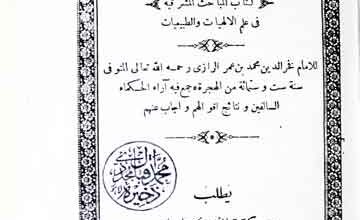 كتاب المباحث المشرقية
فى علم الالهيات والطبيعيات
للامام فخر الدين محمد بن عمر الرازى رحمه الله تعالى المتوفى
سنة ست و ستمائة من الهجرة جمع فيه آراء الحكماء
السالفين و نتائج اقوالهم و اجاب عنهم
محمد اقبال مجددى
ذخيرہ
يطلب